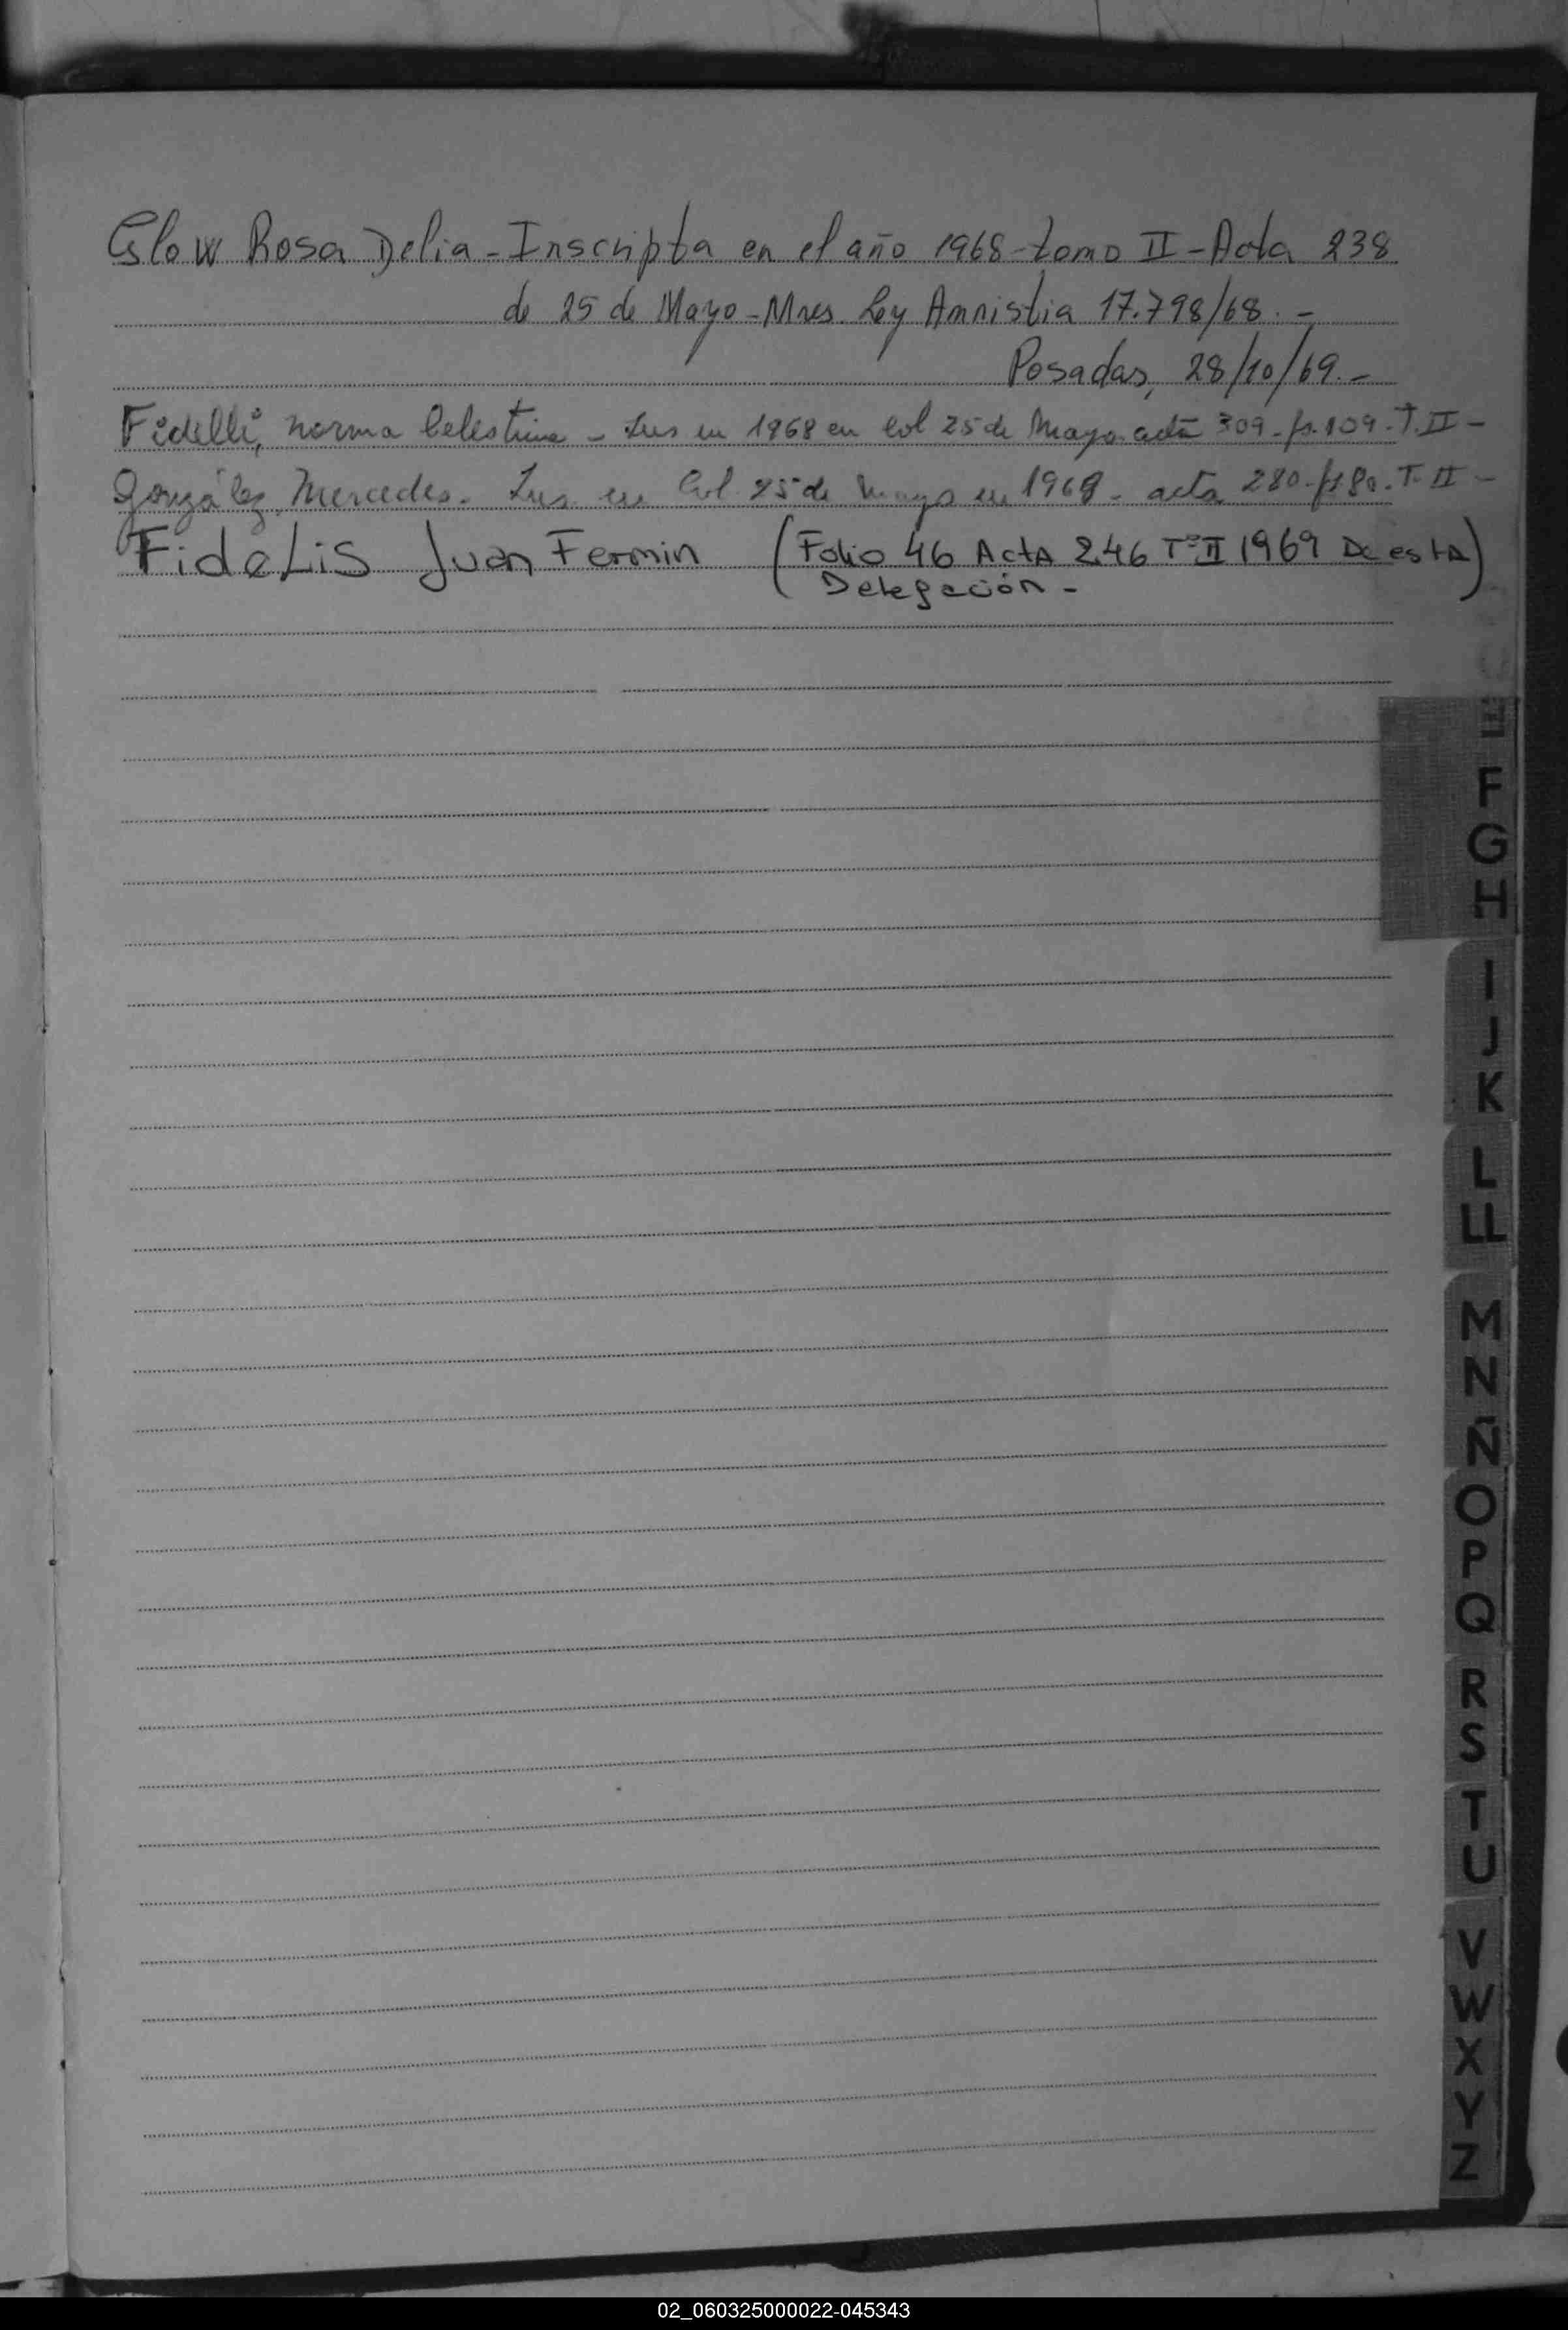 Glow Rosa Delia - Inscripta en el año 1968 - tomo II - Acta 238
de 25 de Mayo - Mnes. Ley Amnistia 17.798/68. -
Posadas, 28/10/69. -
Fidelli, Norma Celestina - Ins en 1968 en Col 25 de Mayo acta 309 - fo. 109 - T. II -
González, Mercedes. Ins en Col. 25 de Mayo en 1968 - acta 280 - T. II -
Fidelis Juan Fermin (Folio 46 Acta 246 Tº II 1969 De esta
Delegación -)
E
F
G
H
I
J
K
L
LL
M
N
Ñ
O
P
Q
R
S
T
U
V
W
X
Y
Z
02_060325000022-045343